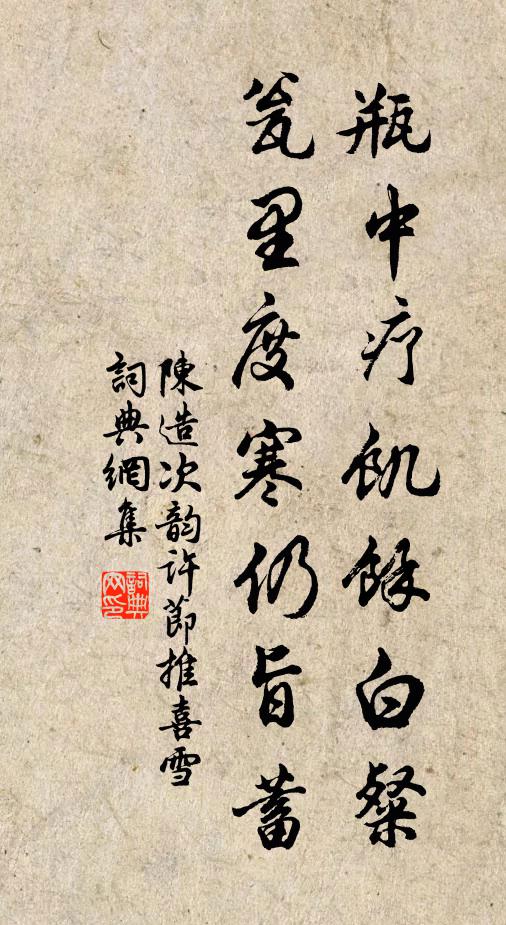 瓶中疗飢餘白粲
瓮里度寒仍旨蓄
陳造次韵許節推喜雪
詞典網集
詞典網印